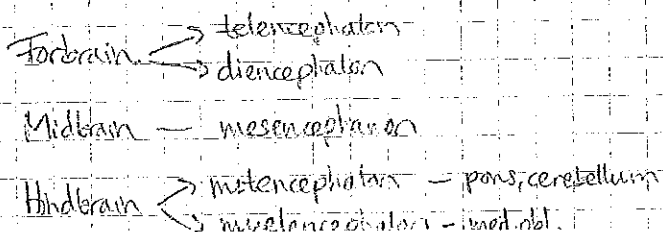 Forbrain → telencephalon
→ diencephalon
Midbrain — mesencephalon
Hindbrain → metencephalon – pons, cerebellum
→ myelencephalon – med. obl.